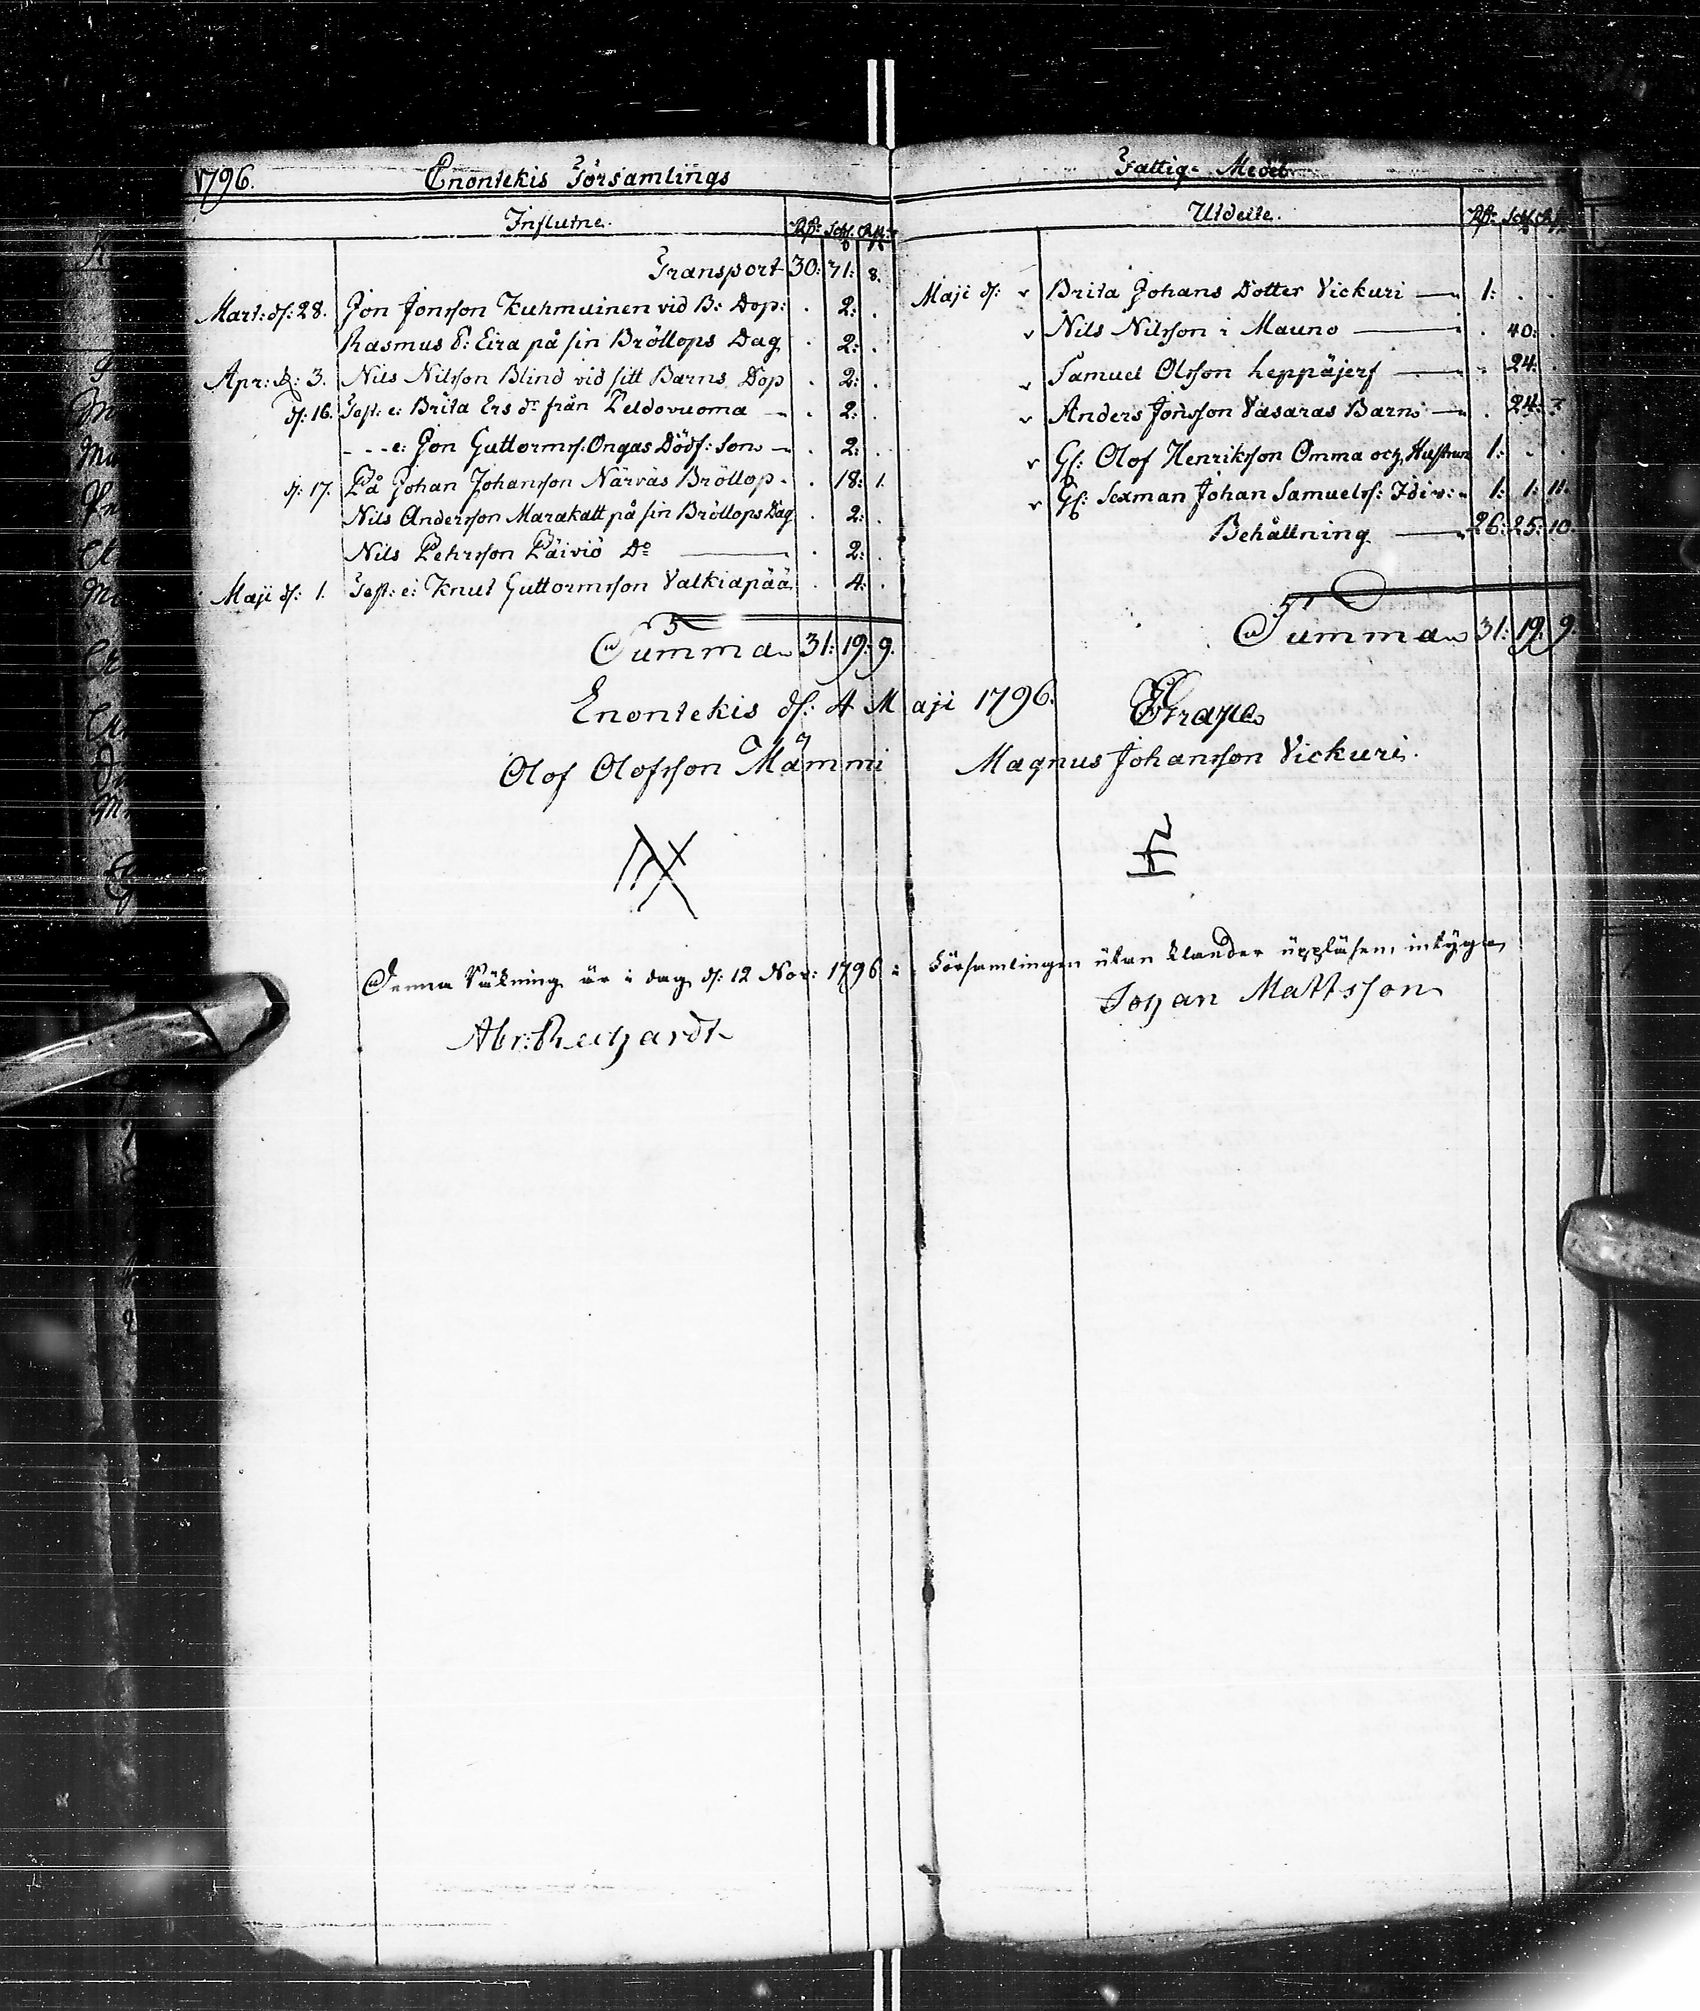 1796. Enontekis Församlings
Influtne. Rdr Sch. Rst:
Transport 30: 31: 8.
Mart: d: 28. Jon Jonsson Kuhmuinen vid B: Dop: . 2: .
Rasmus P: Eira på sin Bröllops Dag . 2: .
Apr: d: 3. Nils Nilsson Blind vid sitt Barns Dop . 2: .
d: 16. Test: e: Brita Ers dr från Peldovuoma . 2: .
- - - e: Jon Guttormss: Ongas Döds: Son . 2: .
d: 17. På Johan Johansson Närväs Bröllop . 18: 1.
Nils Andersson Marakatt på sin Bröllops Dag . 2: .
Nils Pehrsson Päiviö Do . 2: .
Maji d: 1. Test: e: Knut Guttormsson Valkiapää . 4: .
Summa 31: 19: 9.
Fattig- Medel
Utdelte. Rdr Sch. Rst:
Maji d: v Brita Johans Dotter Vickuri 1: . .
v Nils Nilsson i Mauno . 40: .
v Samuel Olsson Leppäjerf . 24: .
v Anders Jonsson Vasaras Barn . 24:
v Gl: Olof Henriksson Omma och Hustrun 1: . .
v Gl: Sexman Johan Samuelss: 1: 1: 11.
Behållning 26: 25: 10.
Summa 31: 19: 9.
Enontekis d: 4 Maji 1796.
Olof Olofsson Mämmi Magnus Johansson Vickuri.
Denna Räkning är i dag d: 12 Nov: 1796 i Församlingen utan klander uppläsen, intyga
Abr: Rechardt Johan Mattsson